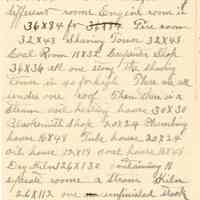 different rooms Engine room is
36X84 ft Fire room
32X48 Shaving Tower 32X48
Coal Room 18X32 Carpenter Shop
36X36 all one story the shaving
Tower is 40 ft high These are all
under one roof. Then there is a
Steam and heating house 30X30
Blacksmith Shop 20X24 Plumbing
house 16X48 Tank house 20X24
oil house 12X18 coal house 16X48
Dry Kiln 26X132 containing 11
seperate rooms a Steam Kiln
26X112 one unfinished Stock